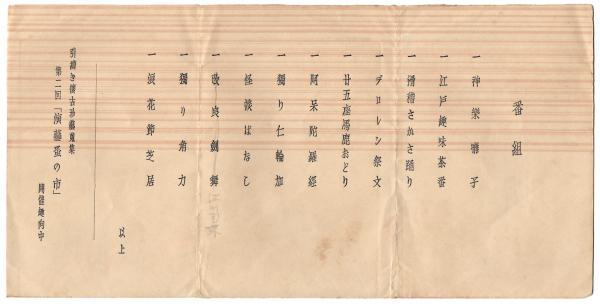 番組
一 神樂囃子
一 江戸趣味茶番
一 滑稽さかさ踊り
一 デロレン祭文
一 廿五座馬鹿おどり
一 阿呆陀羅經
一 獨り仁輪加
一 怪談ばなし
一 改良劍舞
一 獨り角力
一 浪花節芝居
以上
引續き懐古珍藝蒐集
第二回「演藝蚤の市」
開催趣向中